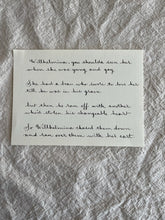 Wilhelmina, you shoulda seen her
when she was young and gay
She had a beau who swore to love her
till he was in his grave
but then he ran off with another
who'd stolen his changeable heart
So Wilhelmina chased them down
and ran over them with her cart